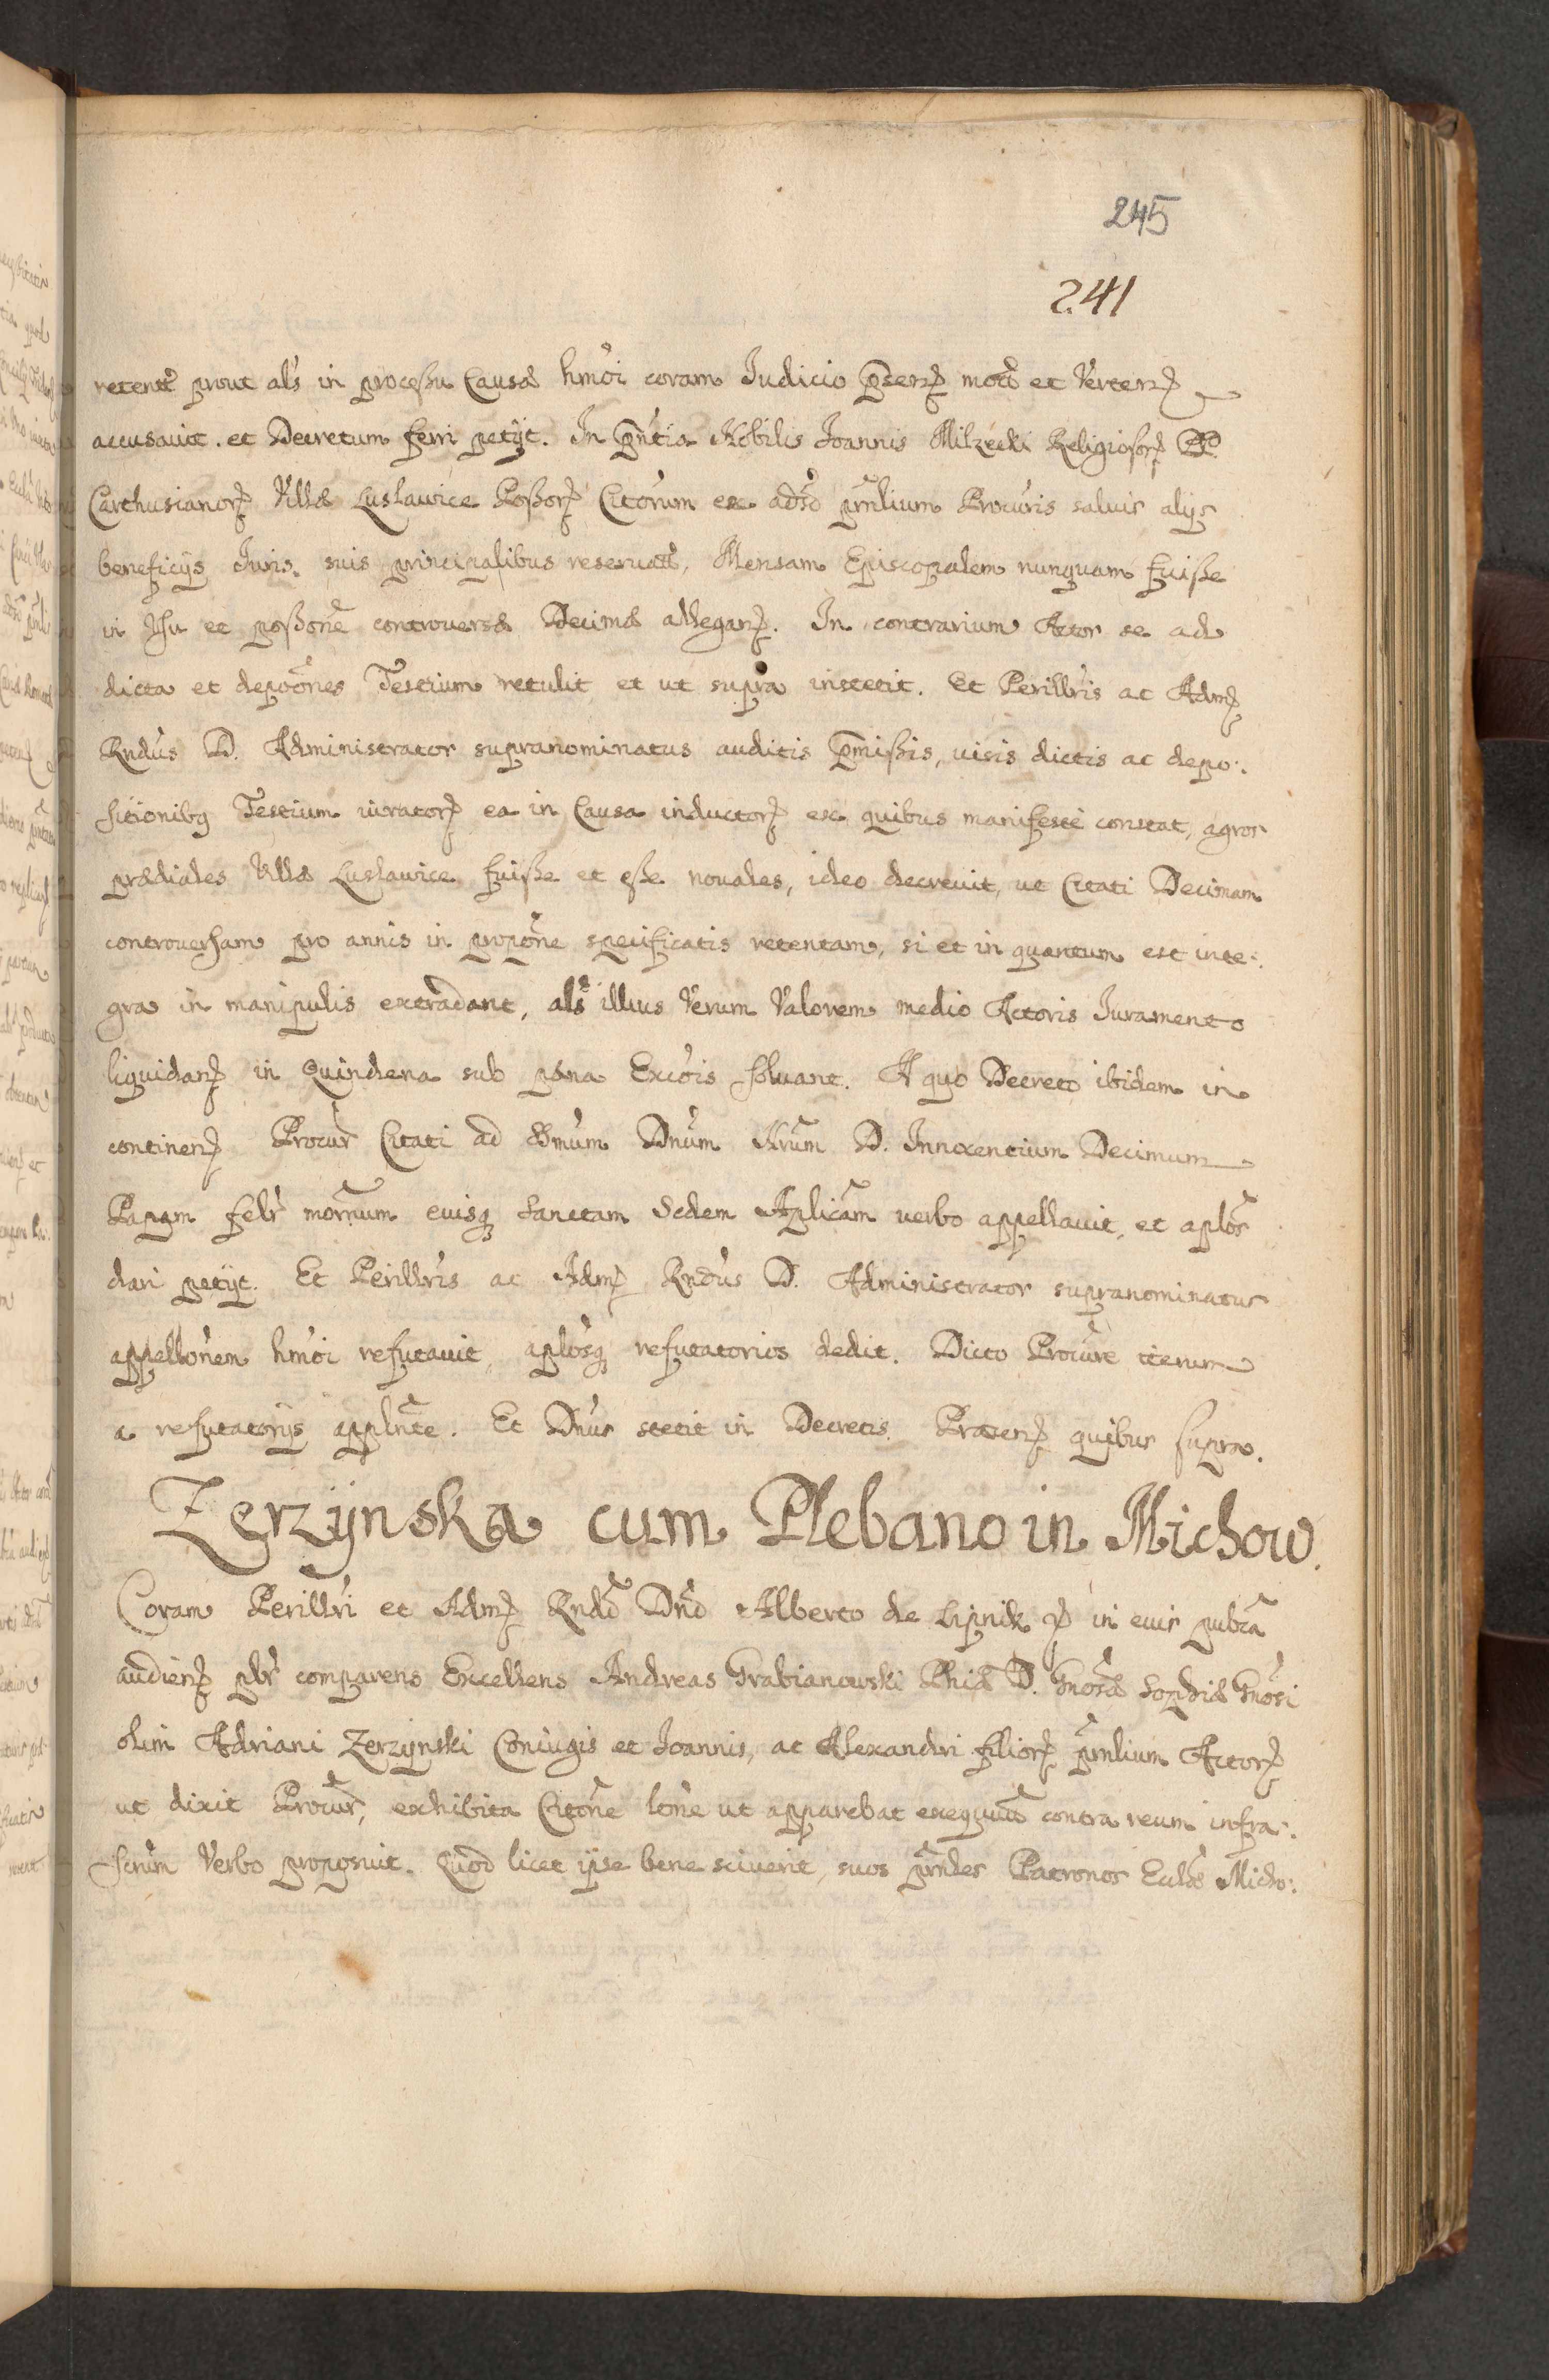 245
241
retentæ prout als in processu Causæ hmoi coram Judicio præsen. motæ et Verten.
accusavit. et Decretum ferri petijt. In pntia Nobilis Joannis Milzecki Religiosor. PP.
Carthusianor. Villæ Luslawice Possor. Citorum ex adso pnlium Procuris salvis alijs
beneficijs Juris. suis principalibus reservatis, Mensam Episcopalem nunquam fuisse
in Usu et possone controversæ Decimæ allegan. In contrarium Actor se ad
dicta et depoones Testium retulit et ut supra institit. Et Perillris ac Adm.
Rndus D. Administrator supranominatus auditis pmissis, visis dictis ac depo:
sitionibq Testium iurator. ea in Causa inductor. ex quibus manifeste constat, agros
prædiales Villæ Luslawice fuisse et esse novales, ideo decrevit, ut Citati Decimam
controversam pro annis in propone specificatis retentam, si et in quantum est inte:
gra in manipulis extradant, als illius Verum Valorem medio Actoris Juramento
liquidan. in Quindena sub pæna Excois solvant. A quo Decreto ibidem in
continen. Procur Citati ad Ssmum Dnum Nrum D. Innocentium Decimum
Papam felr modernum eiusq Sanctam Sedem Aplicam verbo appellavit, et aplos
dari petijt. Et Perillris ac Adm. Rndus D. Administrator supranominatus
appellonem hmoi refutavit, aplosq refutatorios dedit. Dicto Procure iterum
a refutatorijs appllnte. Et Dnus stetit in Decretis. Præsen. quibus supra.
Zerzynska cum Plebano in Michow.
Coram Perillri et Adm. Rndo Dno Alberto de Lipnik p in eius publca
audien. plr comparens Excellens Andreas Grabianowski Phiæ D. Gnosæ Sophiæ Gnosi
olim Adriani Zerzynski Coniugis et Joannis, ac Alexandri filior. pnlium Actor.
ut dixit Procur, exhibita Citone ltme ut apparebat exequuta contra reum infra:
scrum Verbo proposuit. Quod licet ipse bene sciverit, suos pnles Patronos Eccliæ Micho: